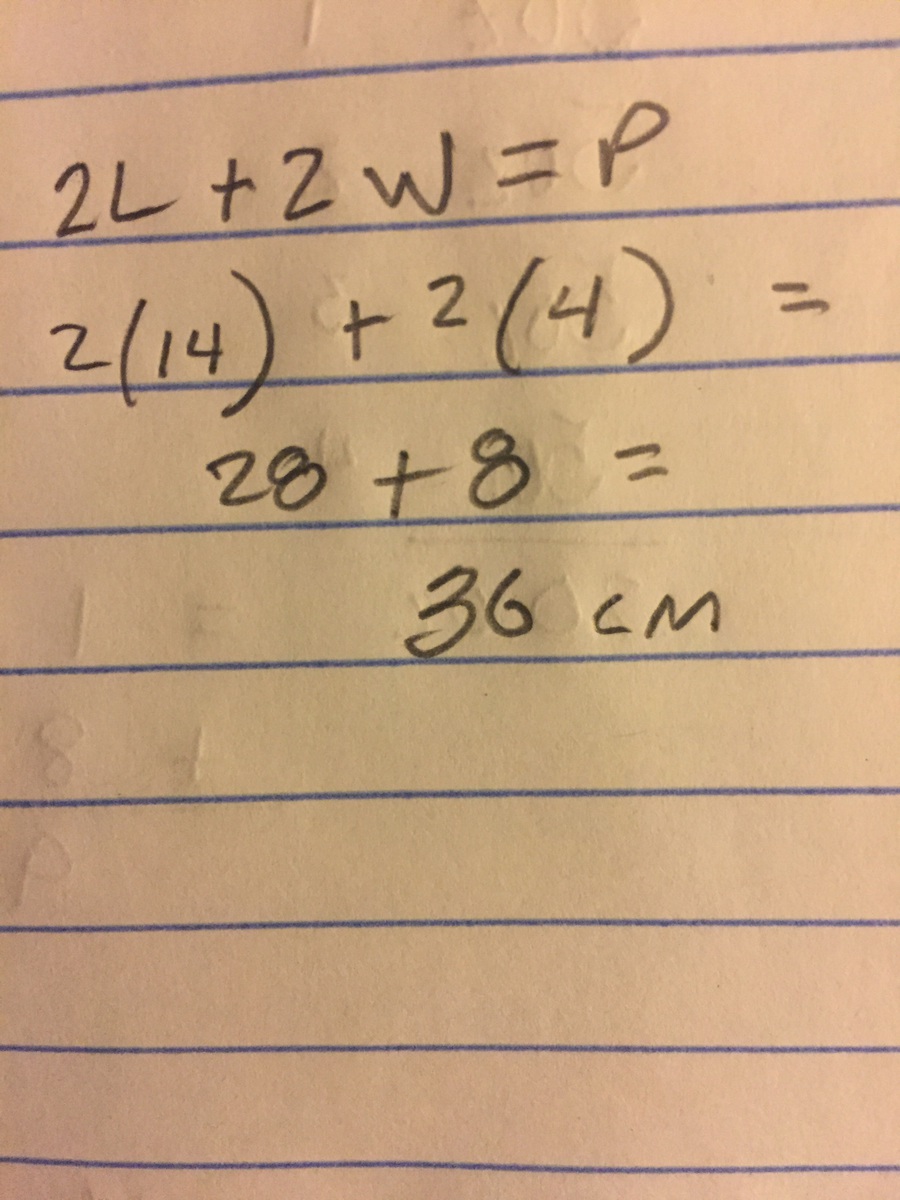 2L + 2W = P
2(14) + 2(4) =
28 + 8 =
36 cm